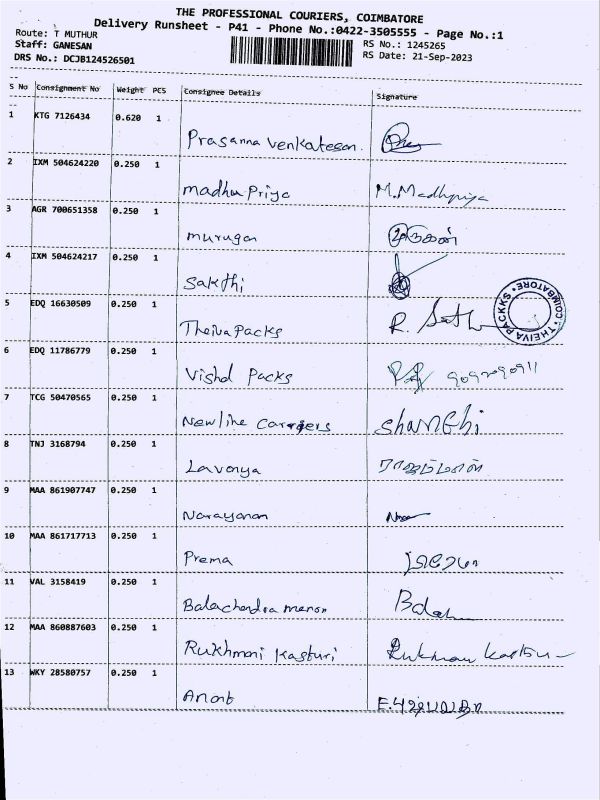 THE PROFESSIONAL COURIERS, COIMBATORE
Delivery Runsheet - P41 - Phone No.:0422-3505555 - Page No.:1
Route: T MUTHUR
RS No.: 1245265
Staff: GANESAN
RS Date: 21-Sep-2023
DRS No.: DCJB124526501
S No Consignment No Weight PCS Consignee Details Signature
1 KTG 7126434 0.620 1
Prasanna Venkatesan.
2 IXM 504624220 0.250 1
madhu Priya M.Madhupriya
3 AGR 700651358 0.250 1
murugan முருகன்
4 IXM 504624217 0.250 1
Sakthi
5 EDQ 16630509 0.250 1
Theiva Packs R.
THEIVA PACKKS * COIMBATORE *
6 EDQ 11786779 0.250 1
Vishal Packs
7 TCG 50470565 0.250 1
Newline Carriers Shanthi
8 TNJ 3168794 0.250 1
Lavanya
9 MAA 861907747 0.250 1
Narayanan
10 MAA 861717713 0.250 1
Prema பிரேமா
11 VAL 3158419 0.250 1
Balachandra menon
12 MAA 860887603 0.250 1
Rukhmani Kasturi
13 WKY 28580757 0.250 1